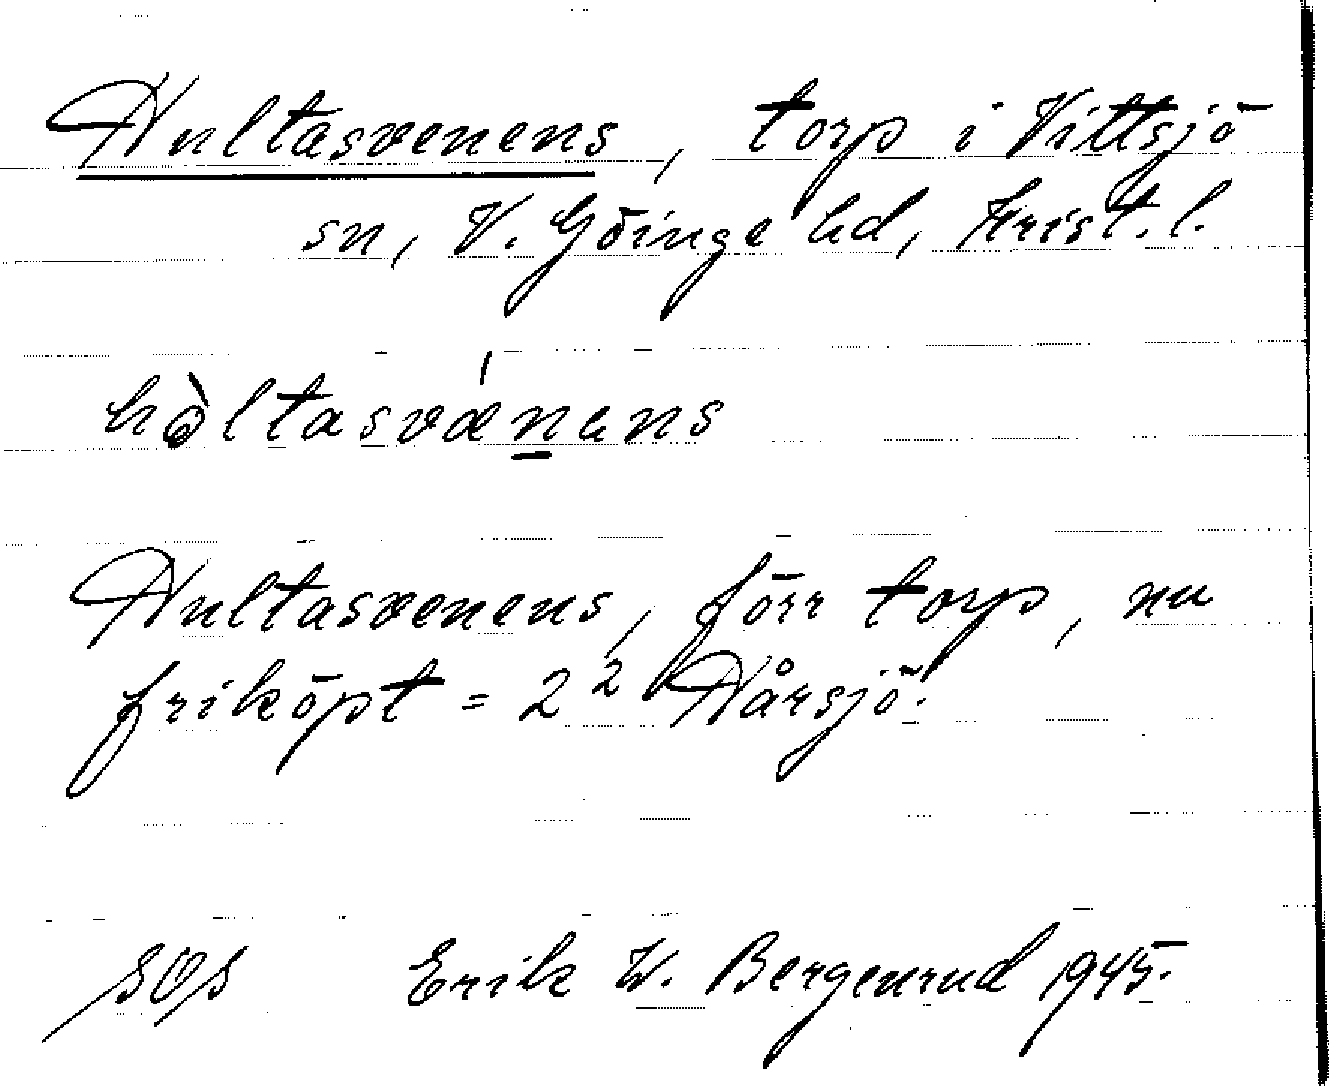 Hultasvenens, torp i Vittsjö
sn, V. Göinge hd, Krist. l.
hòltasvǽnans
Hultasvenens, förr torp, nu
friköpt = 2² Hårsjö.
SOS Erik W. Bergenrud 1945.